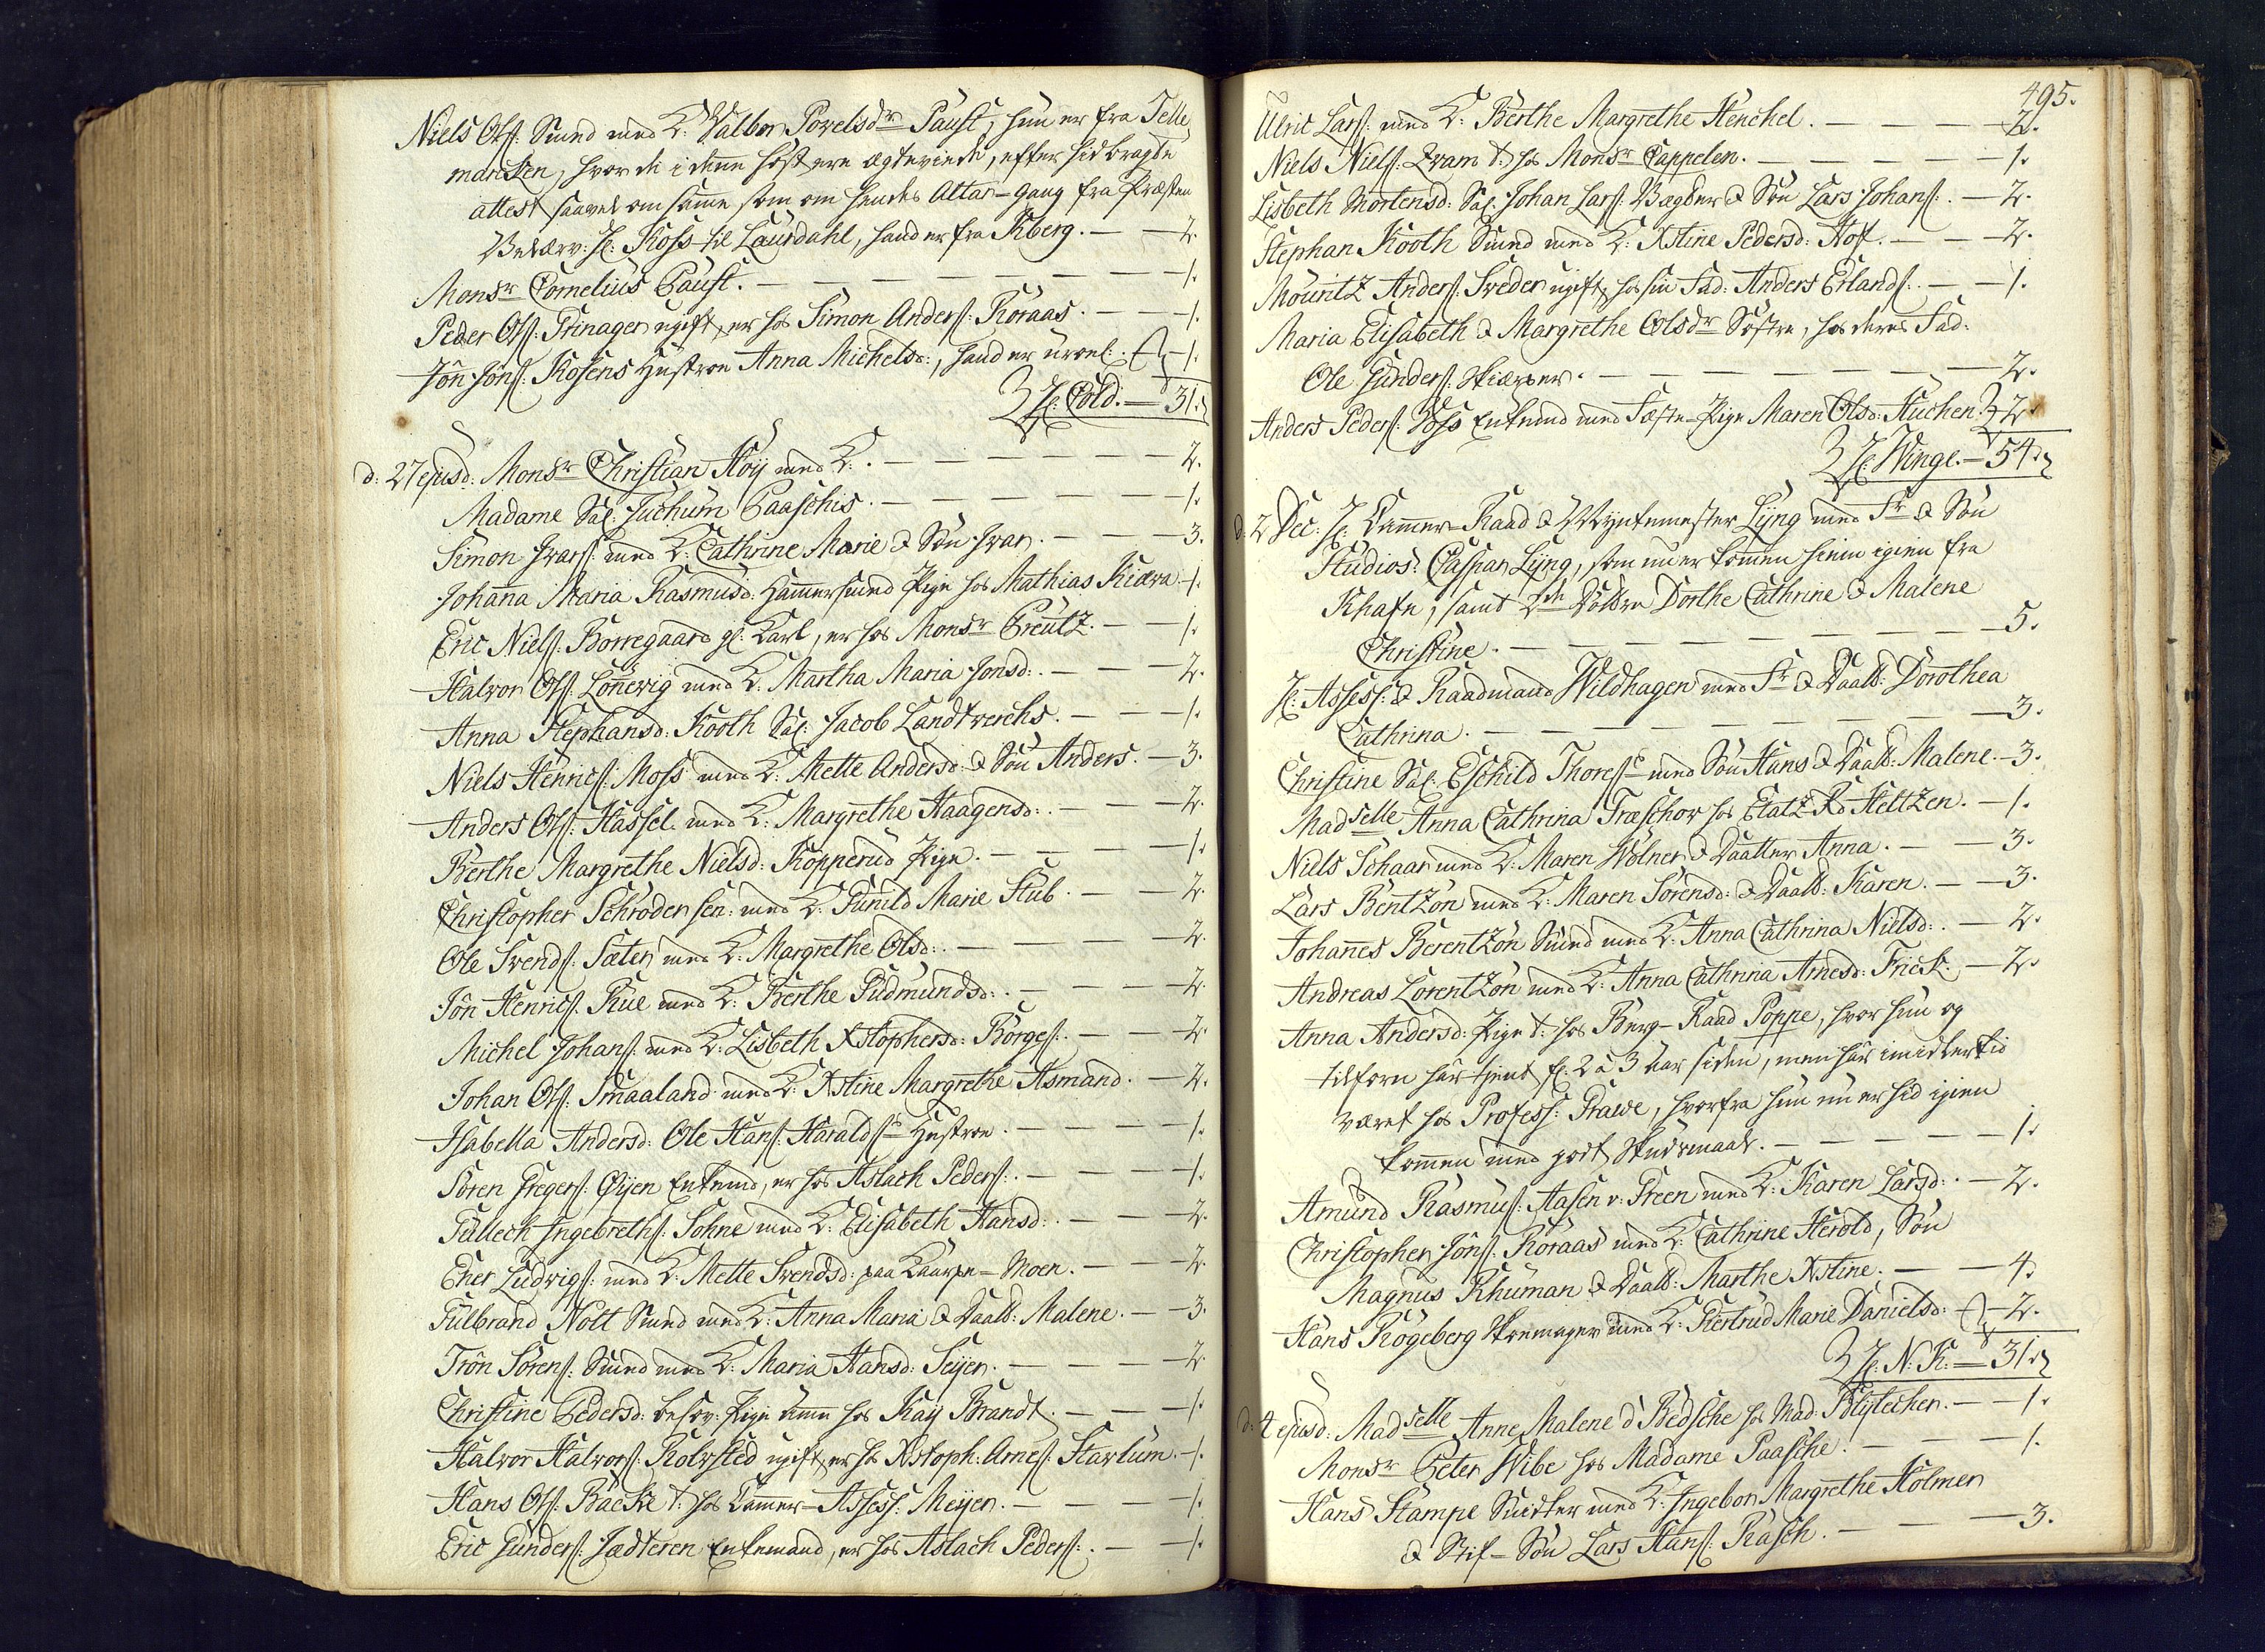 Niels Ols: Smed med K: Valbor Povelsdr Paust, hun er fra Telle
marcken, hvor de i denne höst ere ægteviede, efter hid bragde
attest saavel om samme som om hendes Altar-gang fra Præsten
Velærv: Hr: Koss til Laurdahl, hand er fra Kberg. — 2.
Monsr Cornelius Paust. — 1.
Peder Ols: Prinager ugift, er hos Simon Anders: Röraas. — 1.
Jôn Jôns: Rosens Hustroe Anna Michelsd:, hand er uvel: — 1.
Hr: Cold. — 31.
d: 27 ejusd: Monsr Christian Höy med K: — 2.
Madame Sal: Juchum Paaschis. — 1.
Simon Ivars: med K: Cathrine Marie & Sön Ivar. — 3.
Johanna Maria Rasmusd: Hammersund Pige hos Mathias Kiæra — 1.
Eric Niels: Borregaard gl: Karl, er hos Monsr Creutz. — 1.
Halvor Ols: Lönnevig med K: Martha Maria Jonsd: — 2.
Anna Stephansd: Kooth Sal: Jacob Landtverchs. — 1.
Niels Henrics: Moss med K: Mette Andersd: & Sön Anders. — 3.
Anders Ols: Hassel med K: Margrethe Haagensd: — 2.
Berthe Margrethe Nielsd: Kopperud Pige. — 1.
Christopher Schröder sen: med K: Gunild Marie Stub. — 2.
Ole Svends: Sæter med K: Margrethe Olsd: — 2.
Jôn Henrics: Rue med K: Berthe Gudmundsd: — 2.
Michel Johans: med K: Lisbeth Xstophersd: Börges: — 2.
Johan Ols: Smaaland med K: Xstine Margrethe Asmand. — 2.
Isabella Andersd: Ole Hans: Haralds: Hustroe. — 1.
Sören Gregers: Öyen Enkemd, er hos Aslach Peders: — 1.
Gulleck Ingebreths: Sohne med K: Elisabeth Hansd: — 2.
Ener Ludvigs: med K: Mette Svendsd: paa Laurpe-Moen. — 2.
Gulbrand Nolt Smed med K: Anna Maria & Daatt: Malene. — 3.
Trôn Sörens: Smed med K: Maria Hansd: Seyer. — 2.
Christine Pedersd: besov: Pige amme hos Kay Brandt. — 1.
Halvor Halvors: Kolvsted ugift, er hos Xstoph: Arnes: Starlum. — 1.
Hans Ols: Backe t: hos Kammer-Assess: Meyer. — 1.
Eric Gunders: Jadteren Enkemand, er hos Aslach Peders: — 1.
495.
Ulric Lars: med K: Berthe Margrethe Henchel. — 2.
Niels Niels: Qvam t: hos Monsr Cappelen. — 1.
Lisbeth Mortensd: Sal: Johan Lars: Vægter & Sön Lars Johans: — 2.
Stephan Kooth Smed med K: Xstine Pedersd: Hof. — 2.
Mouritz Anders: Sveder ugift, hos sin Fad: Anders Erlands: — 1.
Maria Elisabeth & Margrethe Olsdr Söstre, hos deres Fad:
Ole Gunders: Skiærper. — 2.
Anders Peders: Voss Enkemd med Fæste-Pige Maren Olsd: Kuchen — 2.
Hr: Winge. — 54.
d: 2 Dec: Hr: Kammer-Raad & Myntemester Lyng med Fr & Sön
Studios: Caspar Lyng, som nu er kommen hiem igien fra
Khafn, samt 2de Döttre Dorthe Cathrine & Malene
Christine. — 5.
Hr: Assess: & Raadmand Wildhagen med Fr & Daatt: Dorothea
Cathrina. — 3.
Christine Sal: Eschild Thores: med Sön Hans & Daatt: Malene. — 3.
Madselle Anna Cathrina Træschow hos Etatz-Rd Heltzen. — 1.
Niels Schaar med K: Maren Wölner & Daatter Anna. — 3.
Lars Bentzön med K: Maren Sörensd: & Daatt: Karen. — 3.
Johannes Berentzön Smed med K: Anna Cathrina Nielsd: — 2.
Andreas Lorentzön med K: Anna Cathrina Arnesd: Frick: — 2.
Anna Andersd: Pige t: hos Berg-Raad Poppe, hvor hun og
tilforn har tient f: 2 à 3 aar siden, men har imidlertid
været hos Profess: Prawe, hvorfra hun nu er hid igien
kommen med godt Skudsmaal. — 1.
Amund Rasmus: Aasen v: Green med K: Karen Larsd: — 2.
Christopher Jôns: Röraas med K: Cathrine Herold, Sön
Magnus Khuman & Daatt: Marthe Xstine. — 4.
Hans Rögeberg Skoemager med K: Giertrud Marie Danielsd: — 2.
Hr: N: K: — 31.
d: 4 ejusd: Madselle Anne Malene d' Bedsche hos Mad: Blytecher. — 1.
Monsr Peter Wibe hos Madame Paasche. — 1.
Hans Stampe Snidker med K: Ingebor Margrethe Holmer
& Stif-Sön Lars Hans: Rasch. — 3.